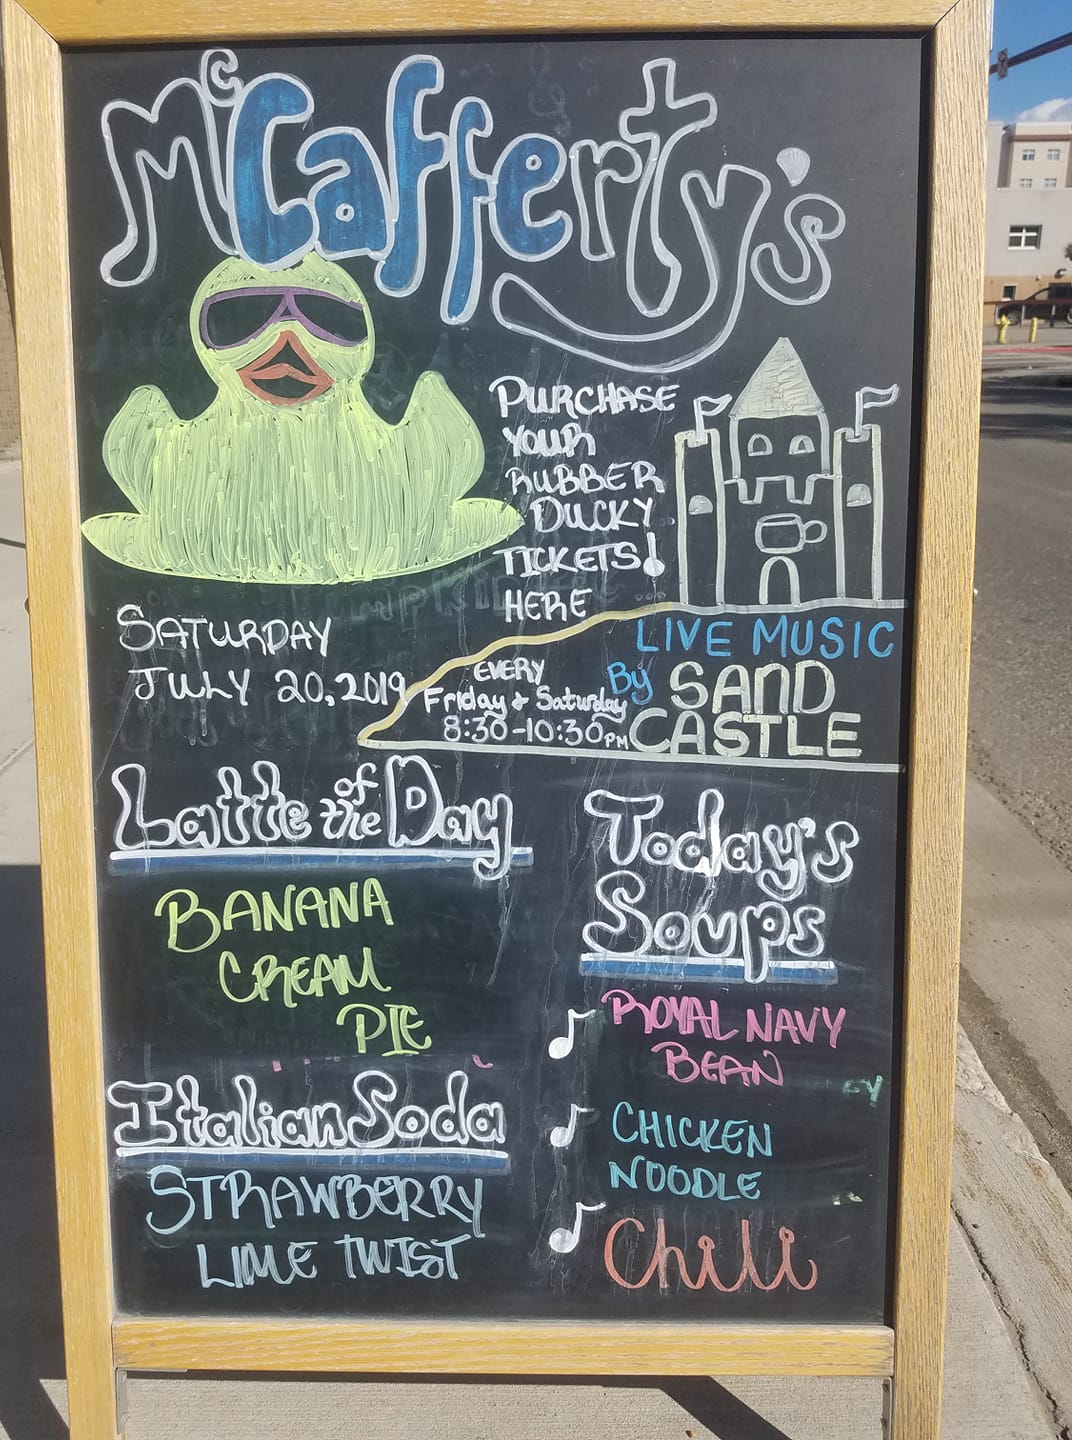 McCafferty's
PURCHASE
YOUR
RUBBER
DUCKY
TICKETS!
HERE
SATURDAY
JULY 20, 2019
LIVE MUSIC
By SAND
CASTLE
EVERY
Friday & Saturday
8:30-10:30PM
Latte of the Day
BANANA
CREAM
PIE
Italian Soda
STRAWBERRY
LIME TWIST
Today's
Soups
ROYAL NAVY
BEAN
CHICKEN
NOODLE
Chili